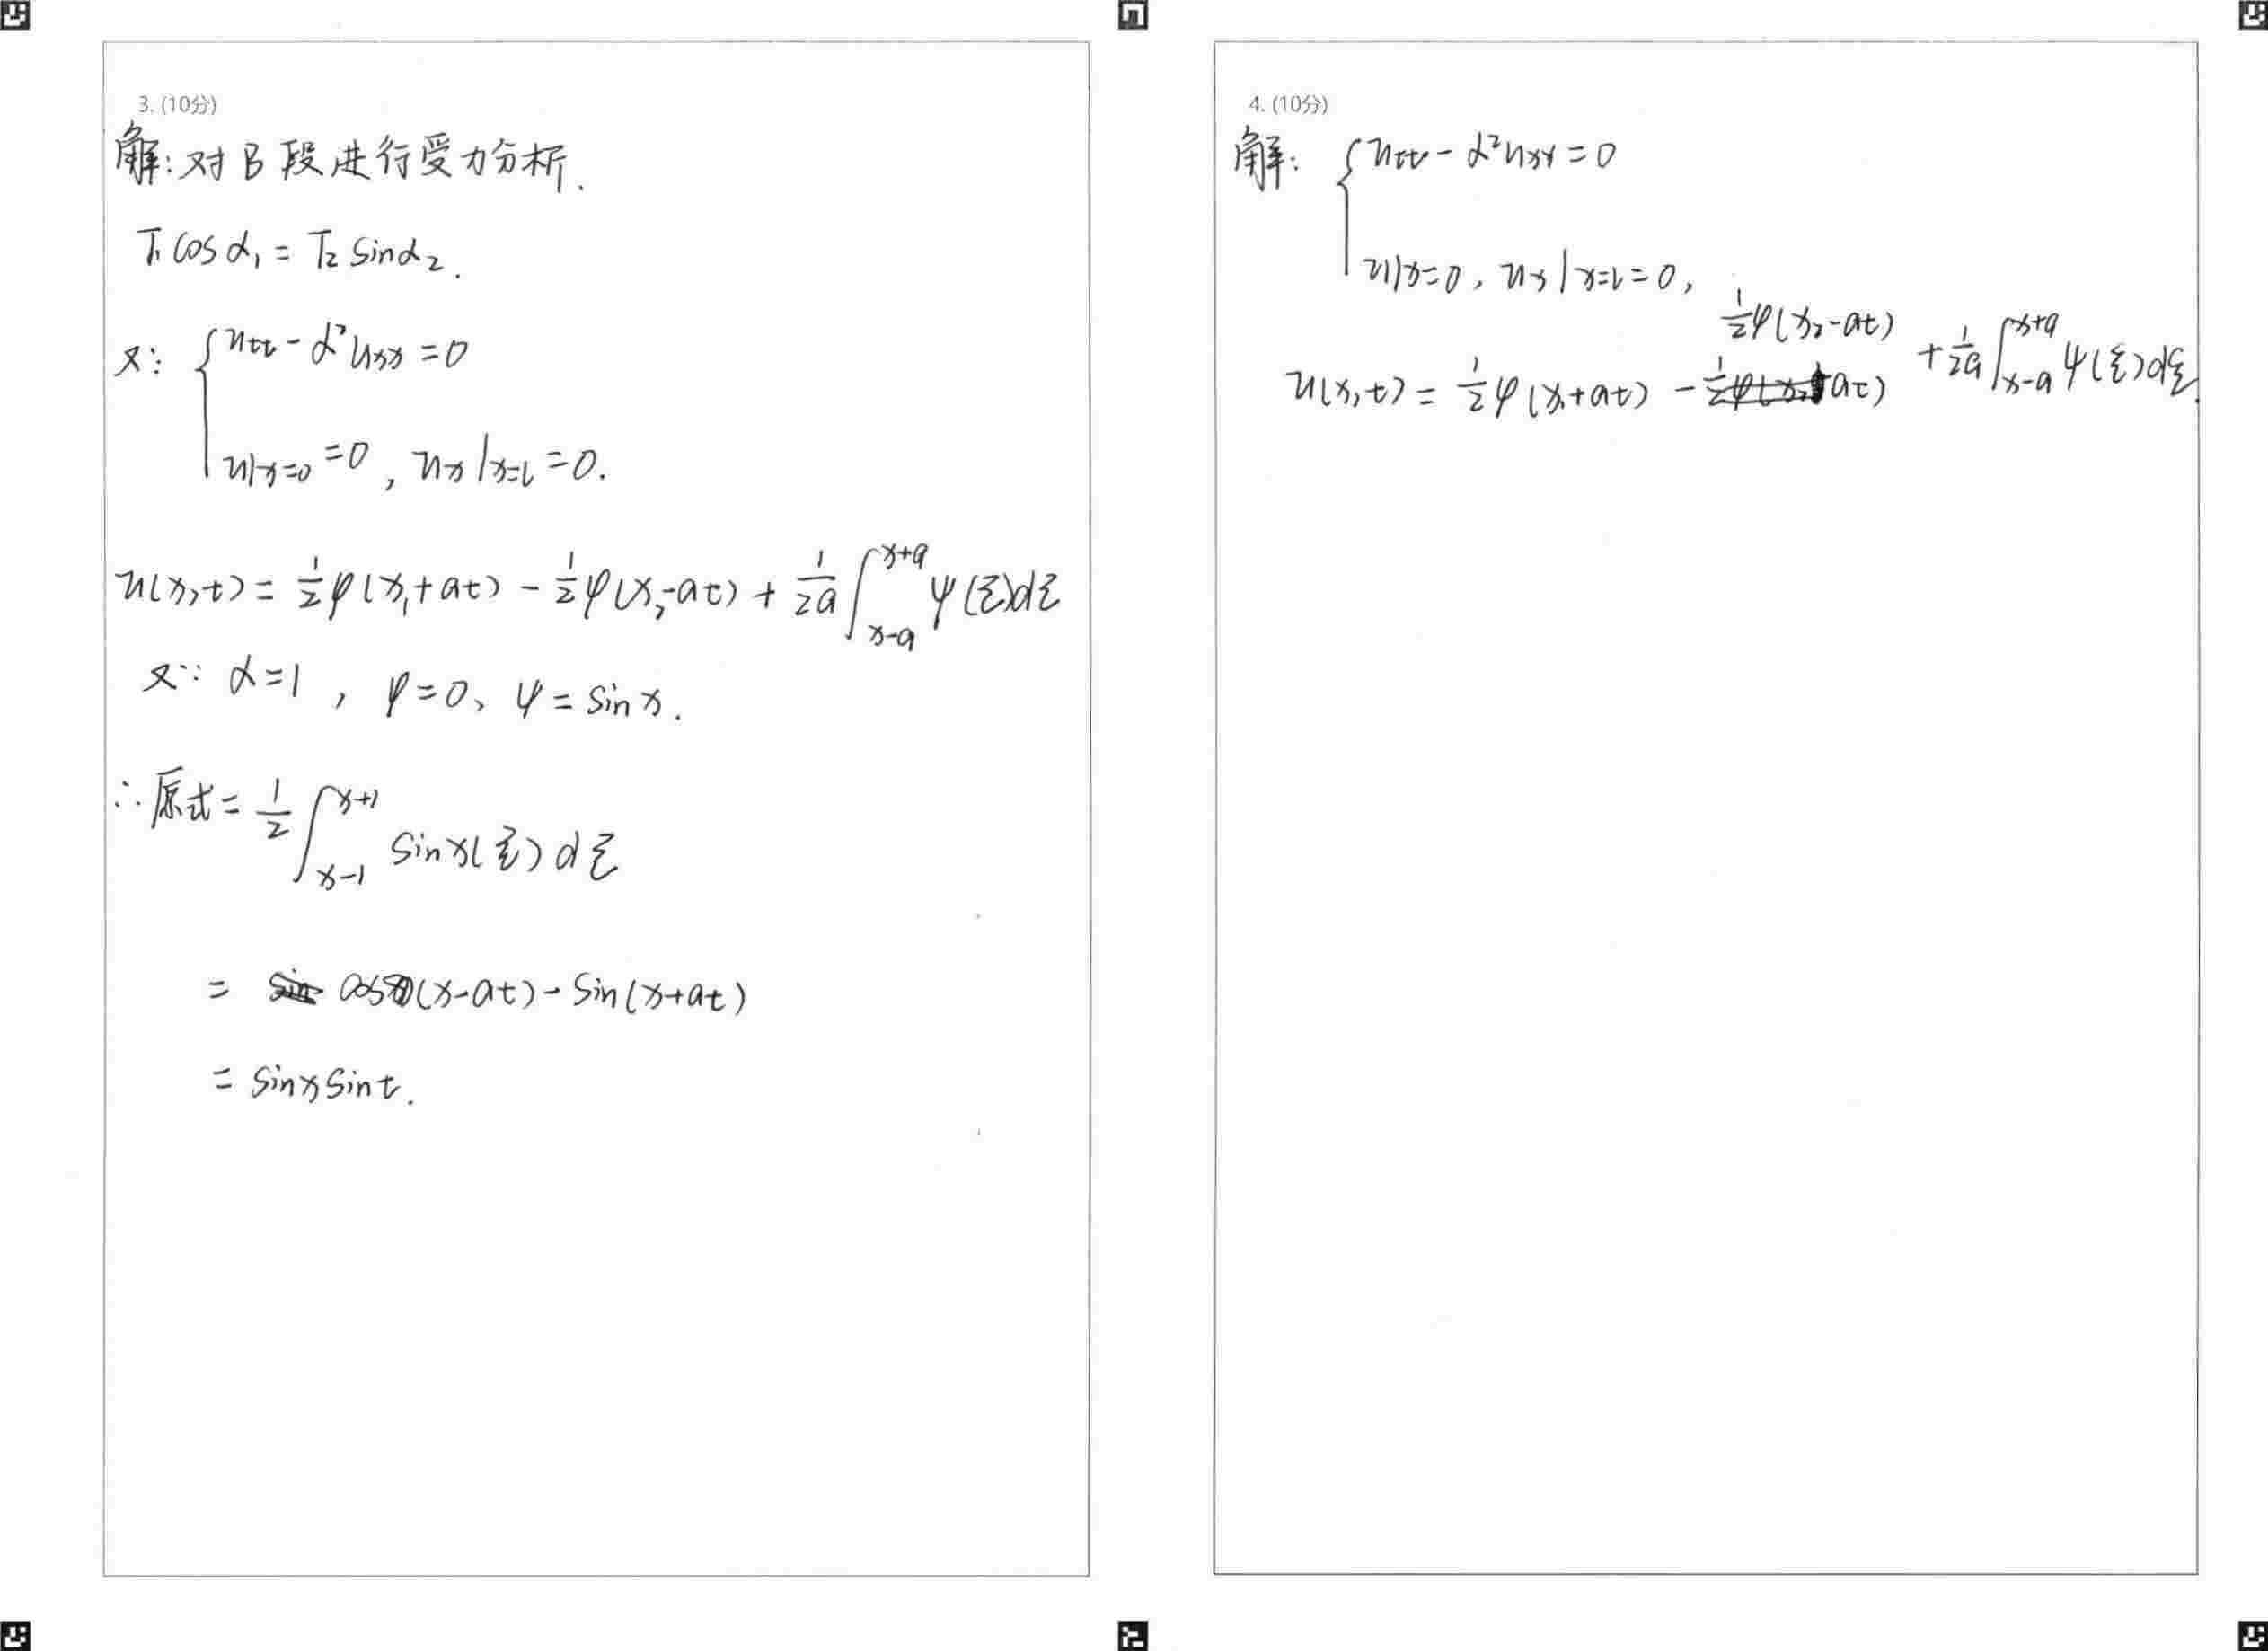 3. (10分)
解:对B段进行受力分析.
T₁cosα₁ = T₂sinα₂.
又: { uₜₜ - α²uₓₓ = 0
u|ₓ₌₀ = 0, uₓ|ₓ₌ₗ = 0.
u(x,t) = 1/2 φ(x₁+at) - 1/2 φ(x₂-at) + 1/2a ∫_{x-a}^{x+a} ψ(ξ)dξ
又∵ α=1, φ=0、ψ=sinx.
∴原式 = 1/2 ∫_{x-1}^{x+1} sinx(ξ)dξ
= cos(x-at) - sin(x+at)
= sinxsint.
4. (10分)
解: { uₜₜ - α²uₓₓ = 0
u|x=0, uₓ|x=l=0,
u(x,t) = 1/2 φ(x₁+at) - 1/2 φ(x₂-at) + 1/2a ∫_{x-a}^{x+a} ψ(ξ)dξ.